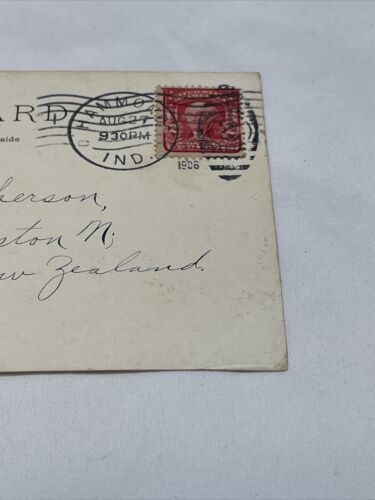 ARD
HAMMO
AUG 27
930PM
IND.
1906
side
herson,
ston N;
w Zealand.